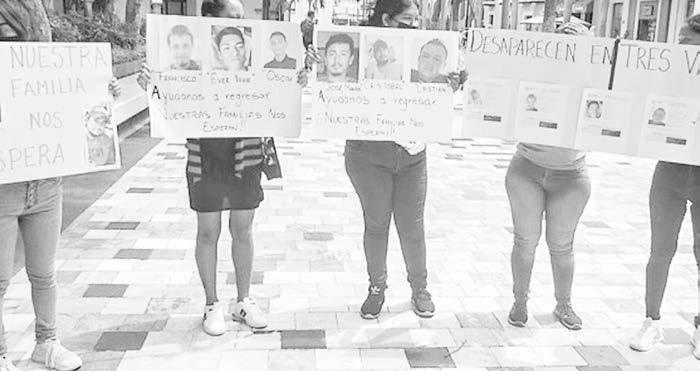 NUESTRA
FAMILIA
NOS
SPERA
FRANCISCO "EVER IVAN" OSCAR
AYUDANOS A REGRESAR
NUESTRAS FAMILIAS NOS
ESPERAN!!!
JOSE MARIA CRISTOBAL CRISTIAN
AYUDANOS A REGRESAR
NUESTRAS FAMILIAS NOS
ESPERAN!!!
DESAPARECEN EN TRES V